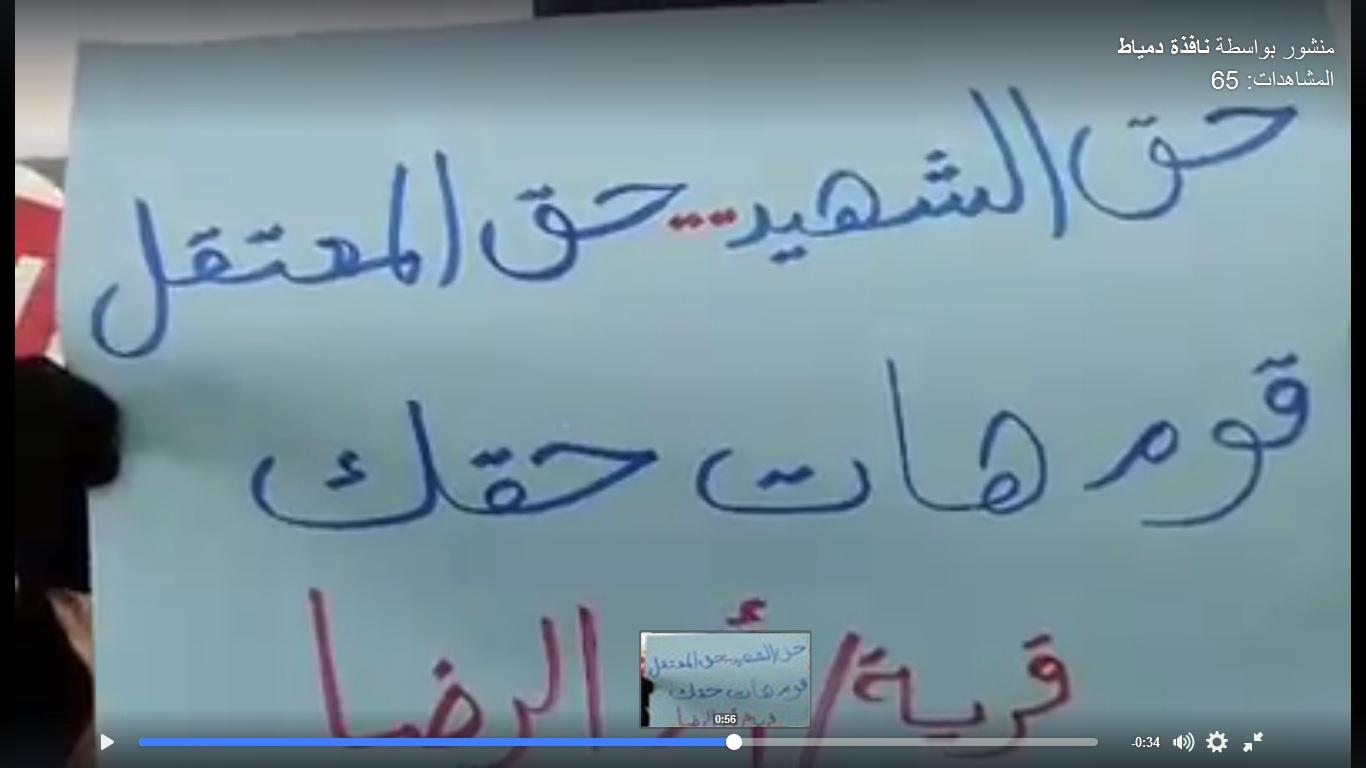 منشور بواسطة نافذة دمياط
المشاهدات: 65
حق الشهيد..حق المعتقل
قوم هات حقك
قرية/أم الرضا
0:56
-0:34